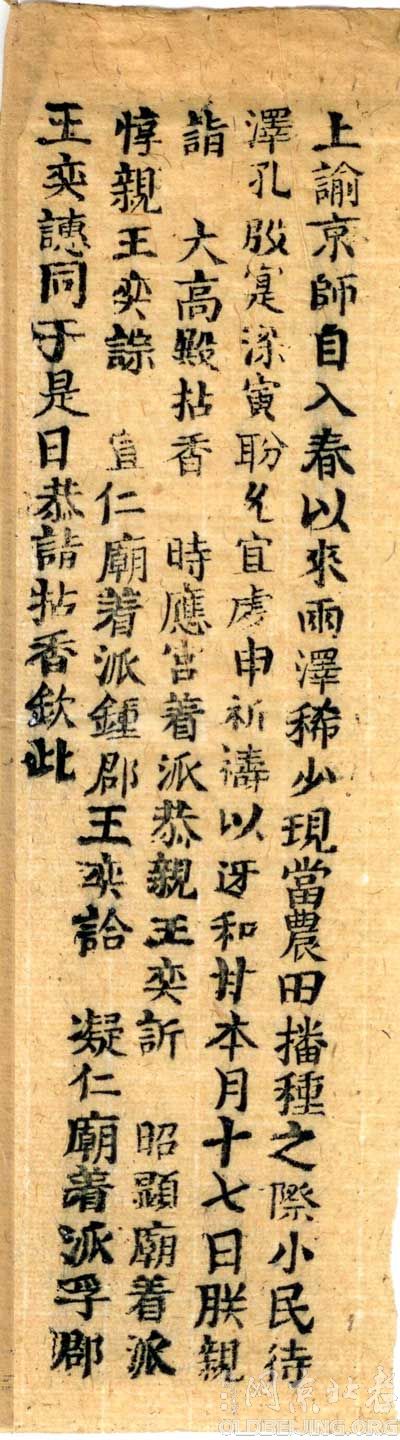 上諭京師自入春以來雨澤稀少現當農田播種之際小民待
澤孔殷寔深寅盼允宜虔申祈禱以迓和甘本月十七日朕親
詣 大高殿拈香 時應宮着派恭親王奕訢 昭顯廟着派
惇親王奕誴 宣仁廟着派鍾郡王奕詥 凝仁廟着派孚郡
王奕譓同于是日恭詣拈香欽此
OLDBEIJING.ORG